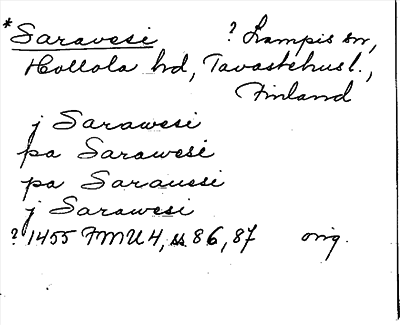 *Saravesi ? Lampis sn,
Hollola hd, Tavastehus l.,
Finland
j Sarawesi
pa Sarawesi
pa Sarauesi
j Sarawesi
? 1455 FMU 4, ss 86, 87 orig.